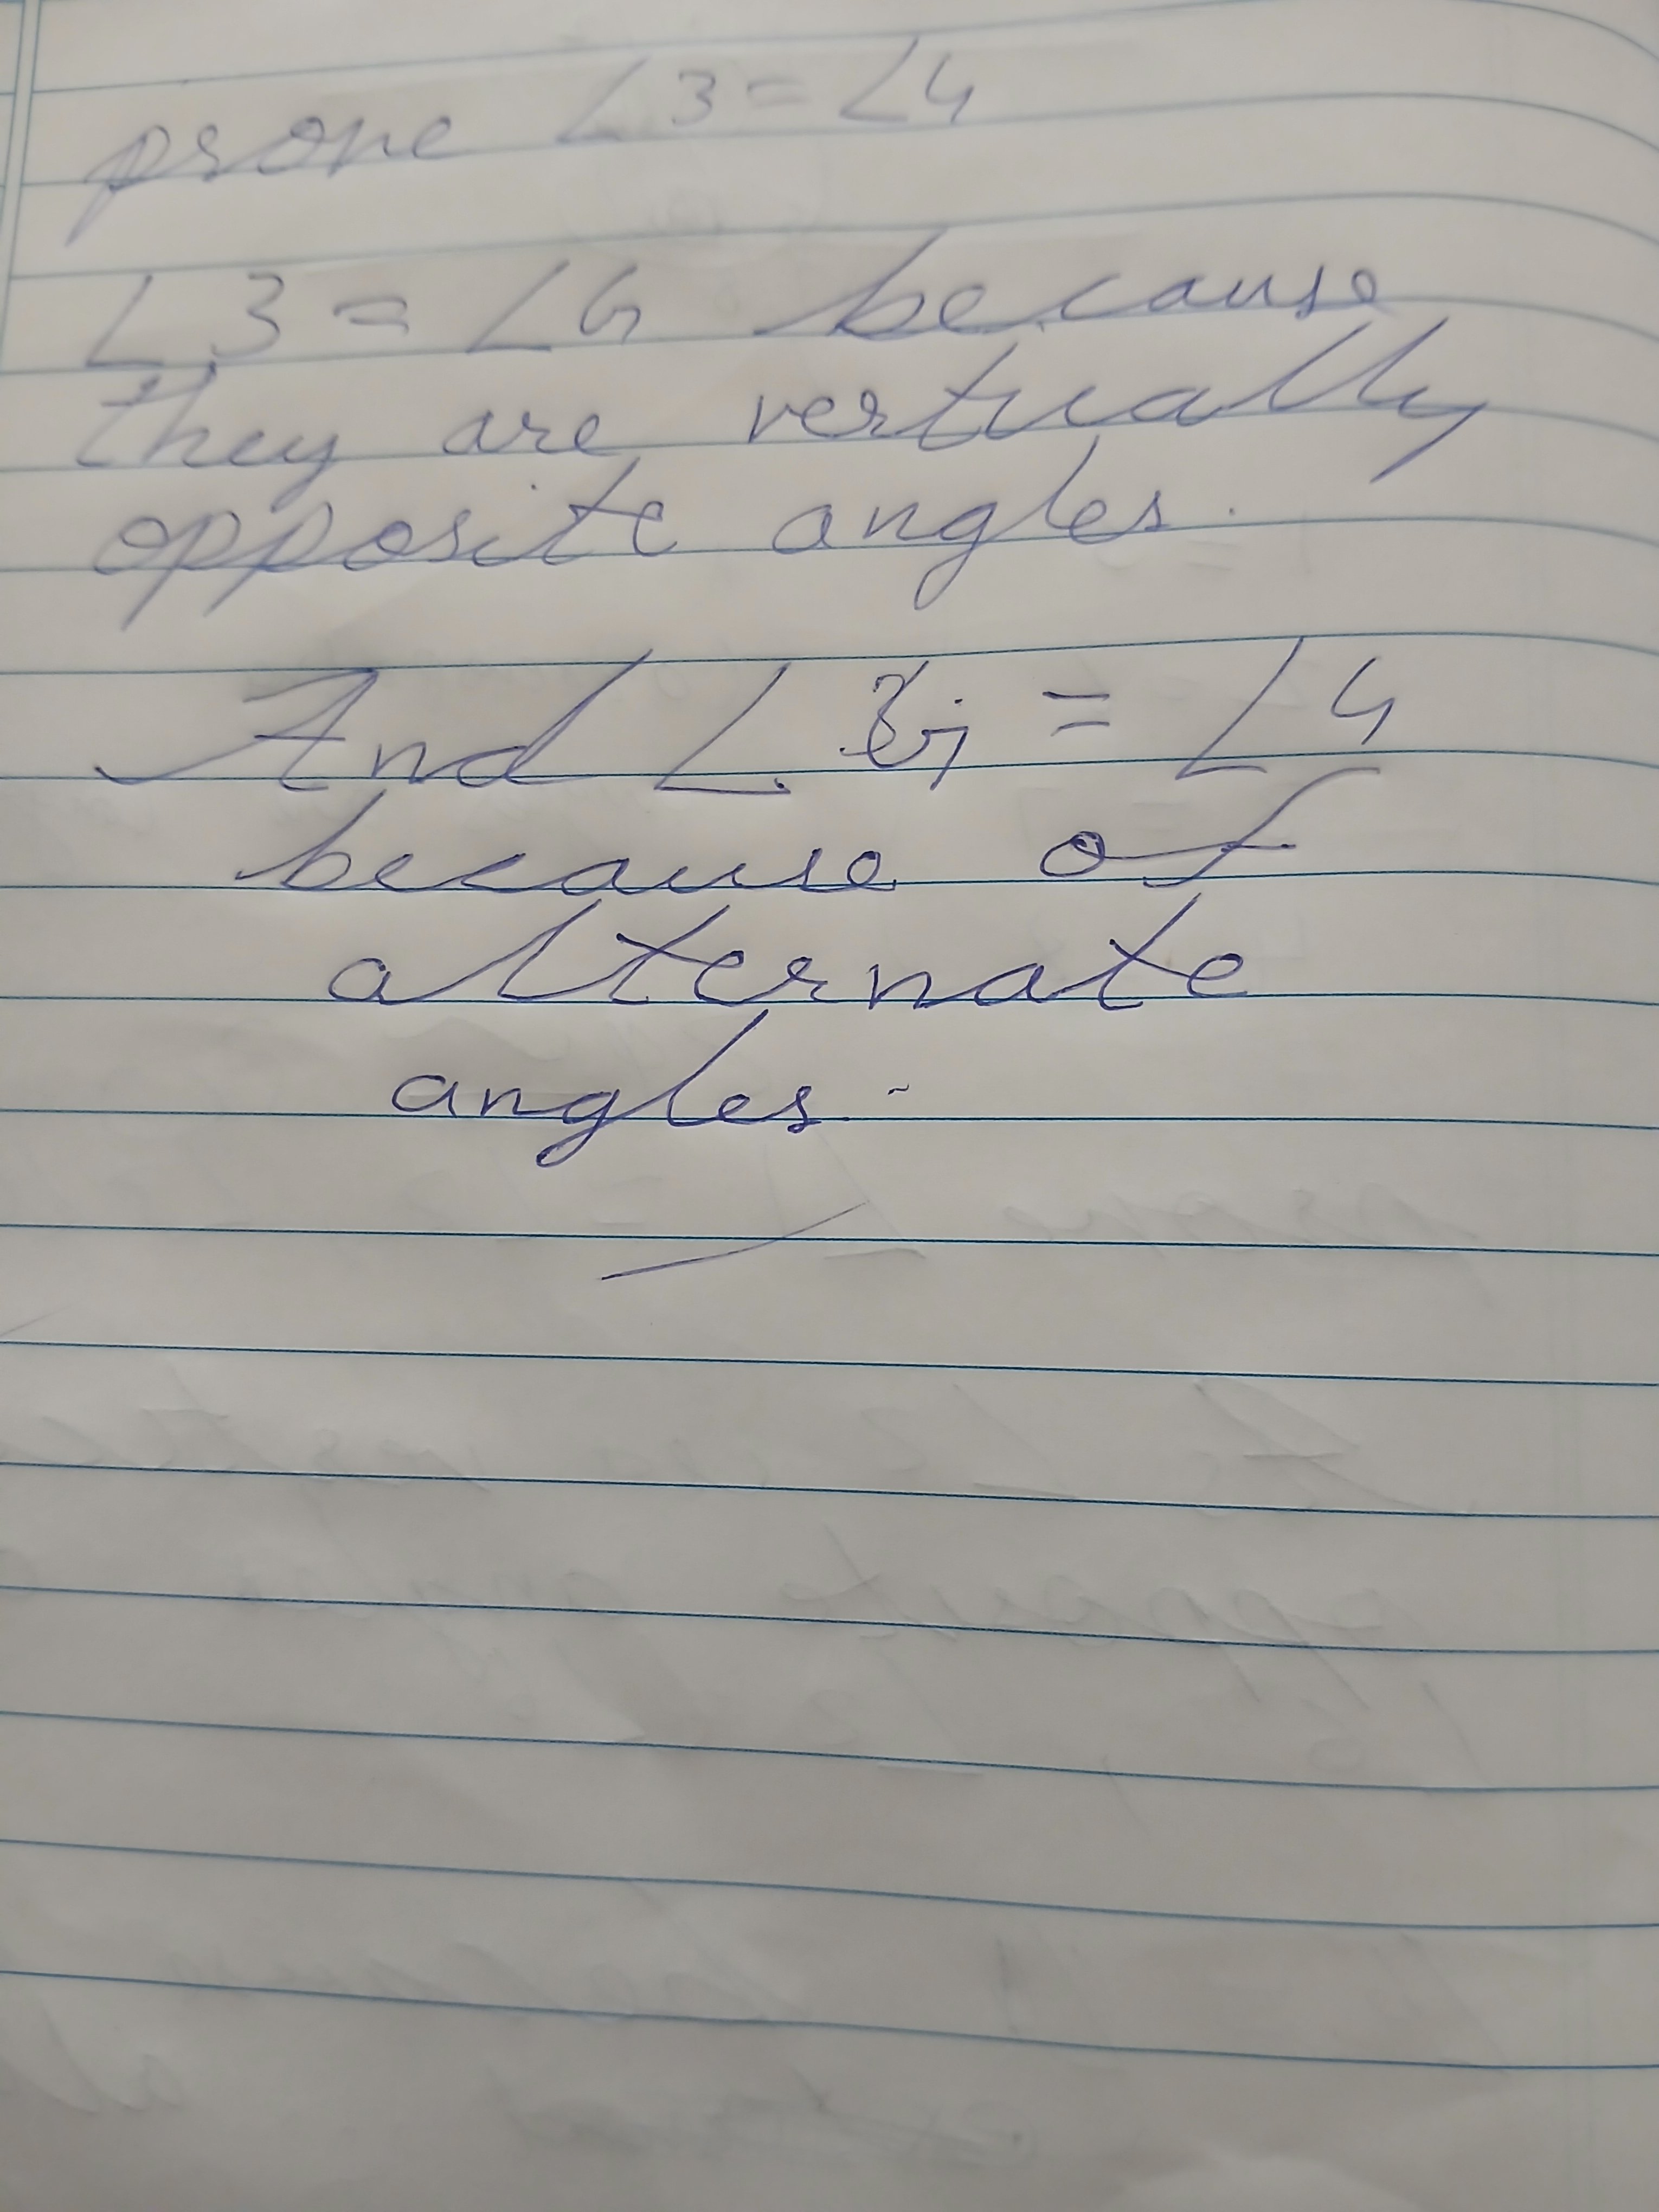 prove ∠3 = ∠4
∠3 = ∠6 because
they are vertually
opposite angles.
And ∠ = ∠4
because of
alternate
angles.